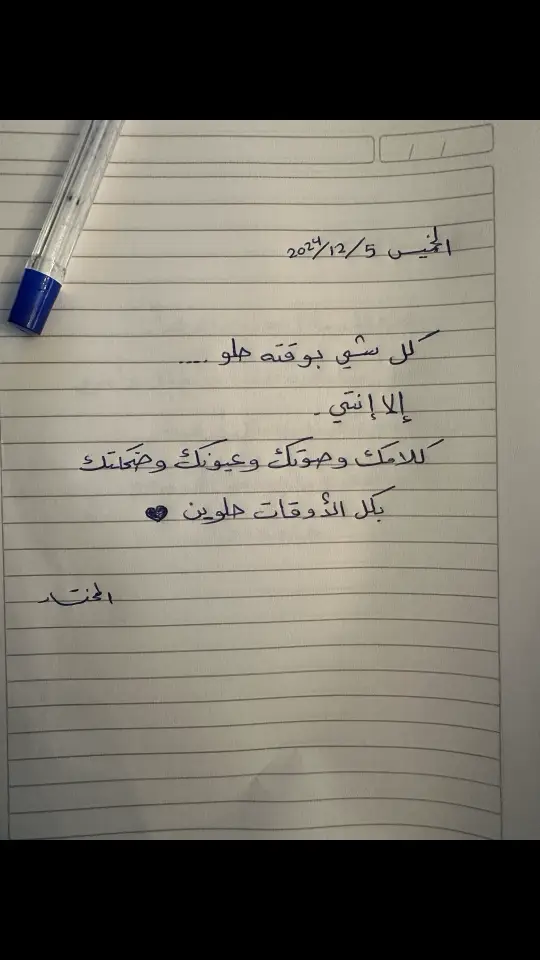 الخميس 5/12/2024
كل شي بوقته حلو ....
إلا إنتي .
كلامك وصوتك وعيونك وضحكتك
بكل الأوقات حلوين ♥
المختار